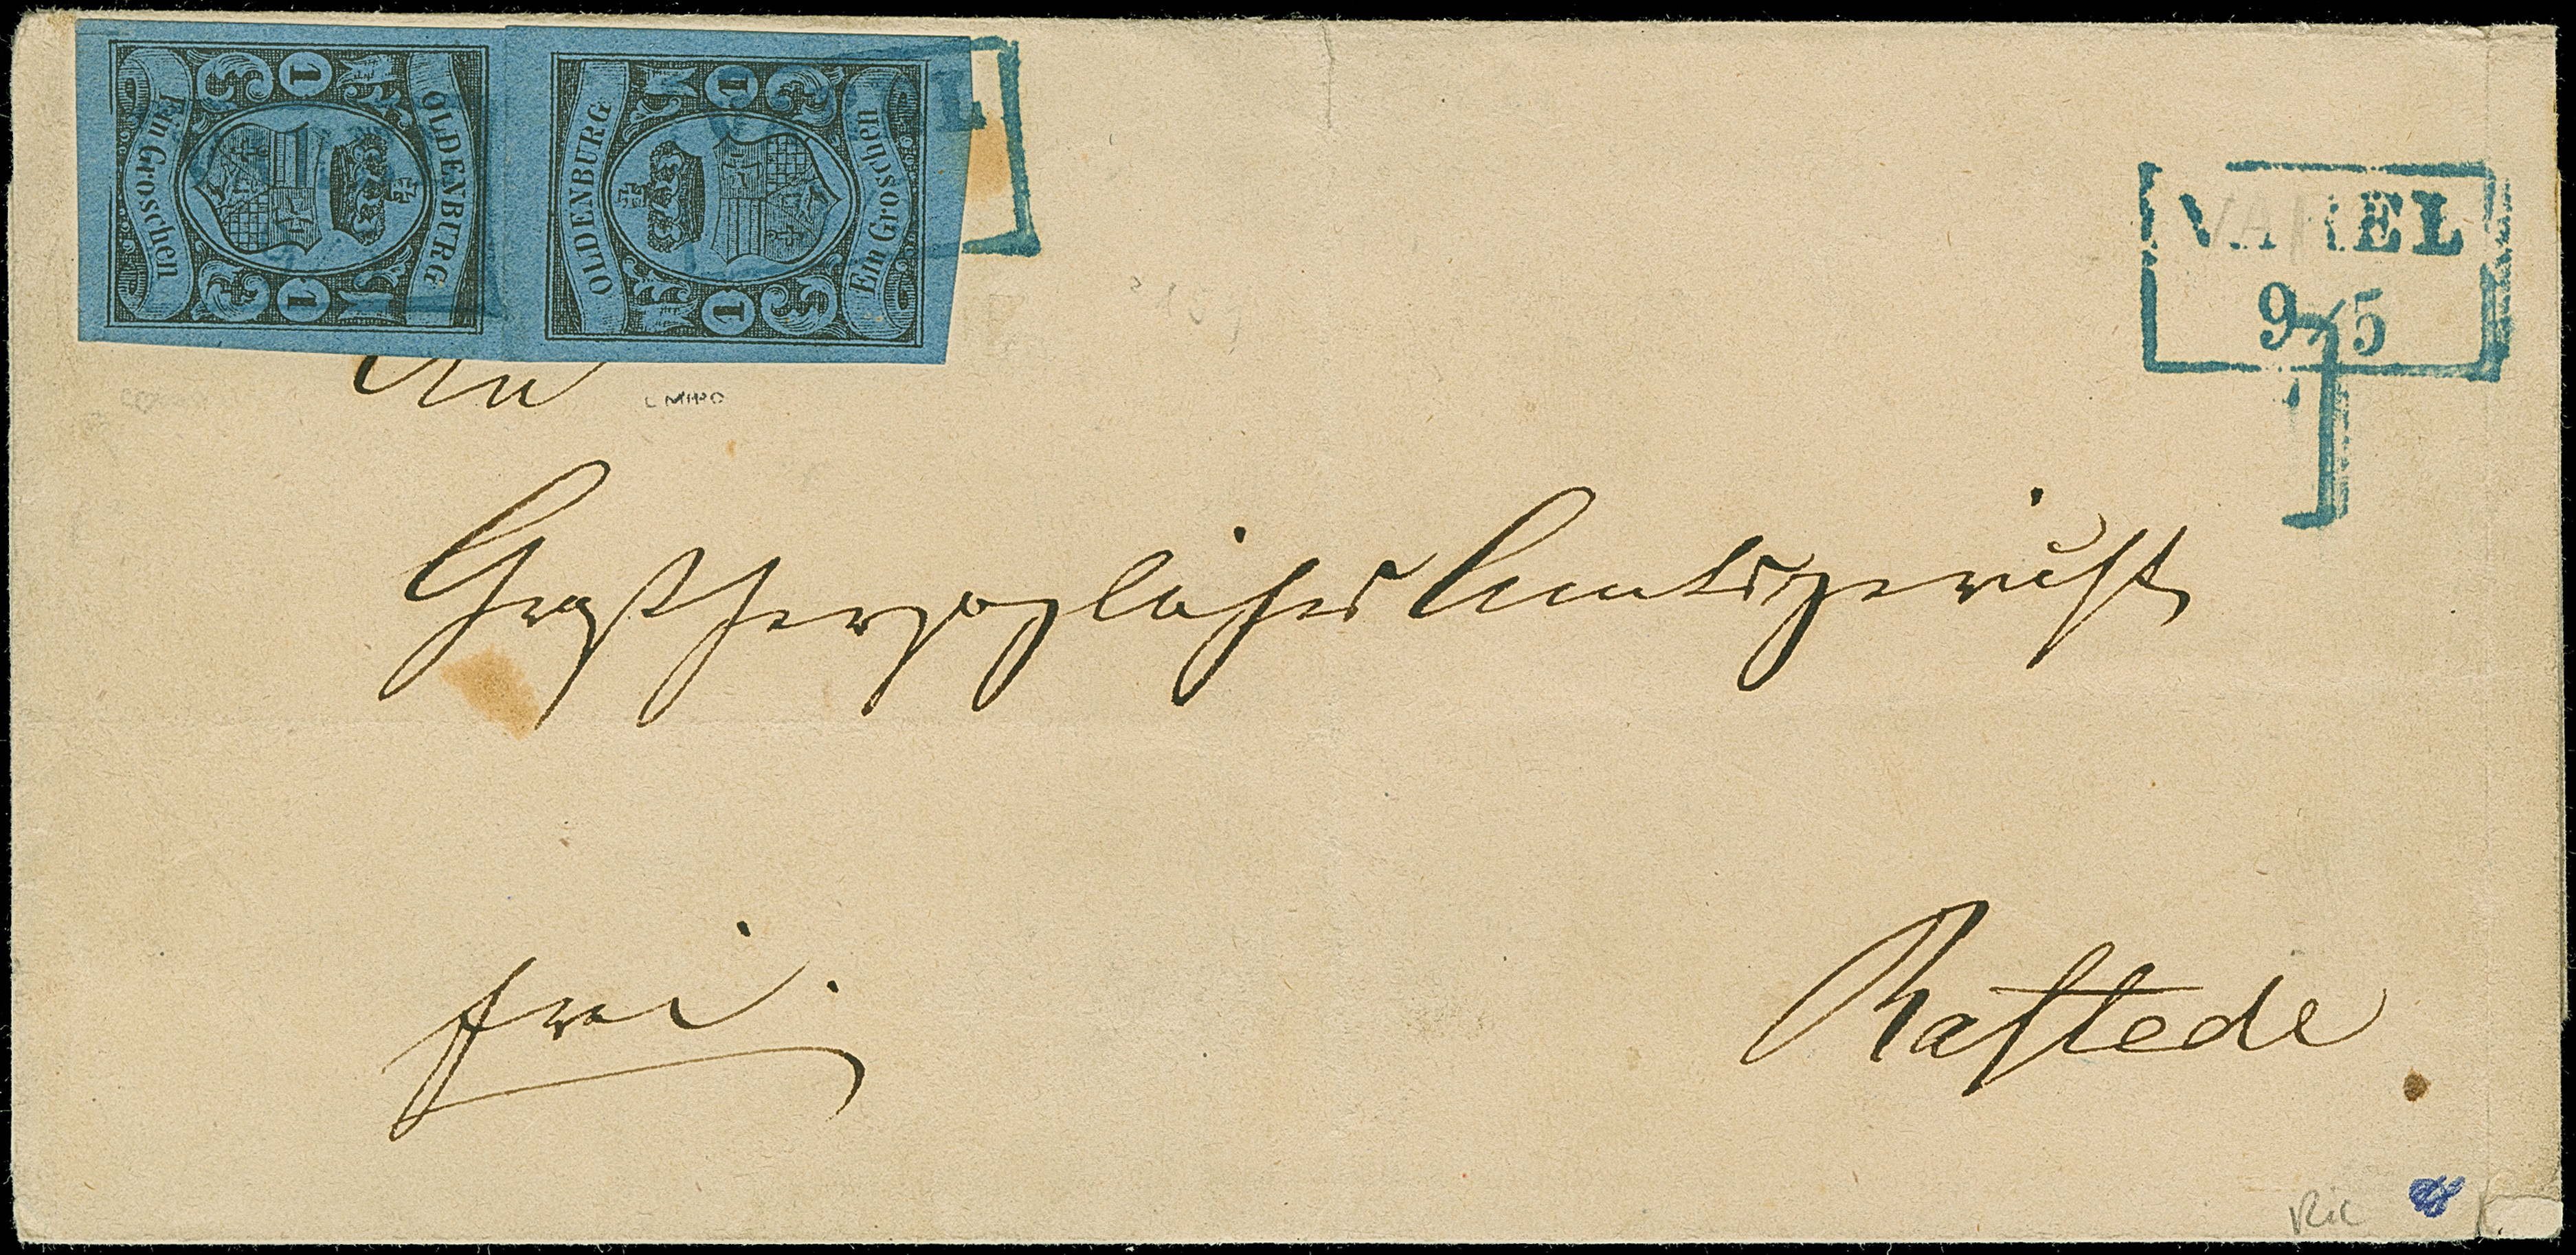 OLDENBURG
Ein Groschen
1 1
OLDENBURG
Ein Groschen
1 1
VAREL
9/5
An
Großherzogliches Amtsgericht
frei.
Rastede